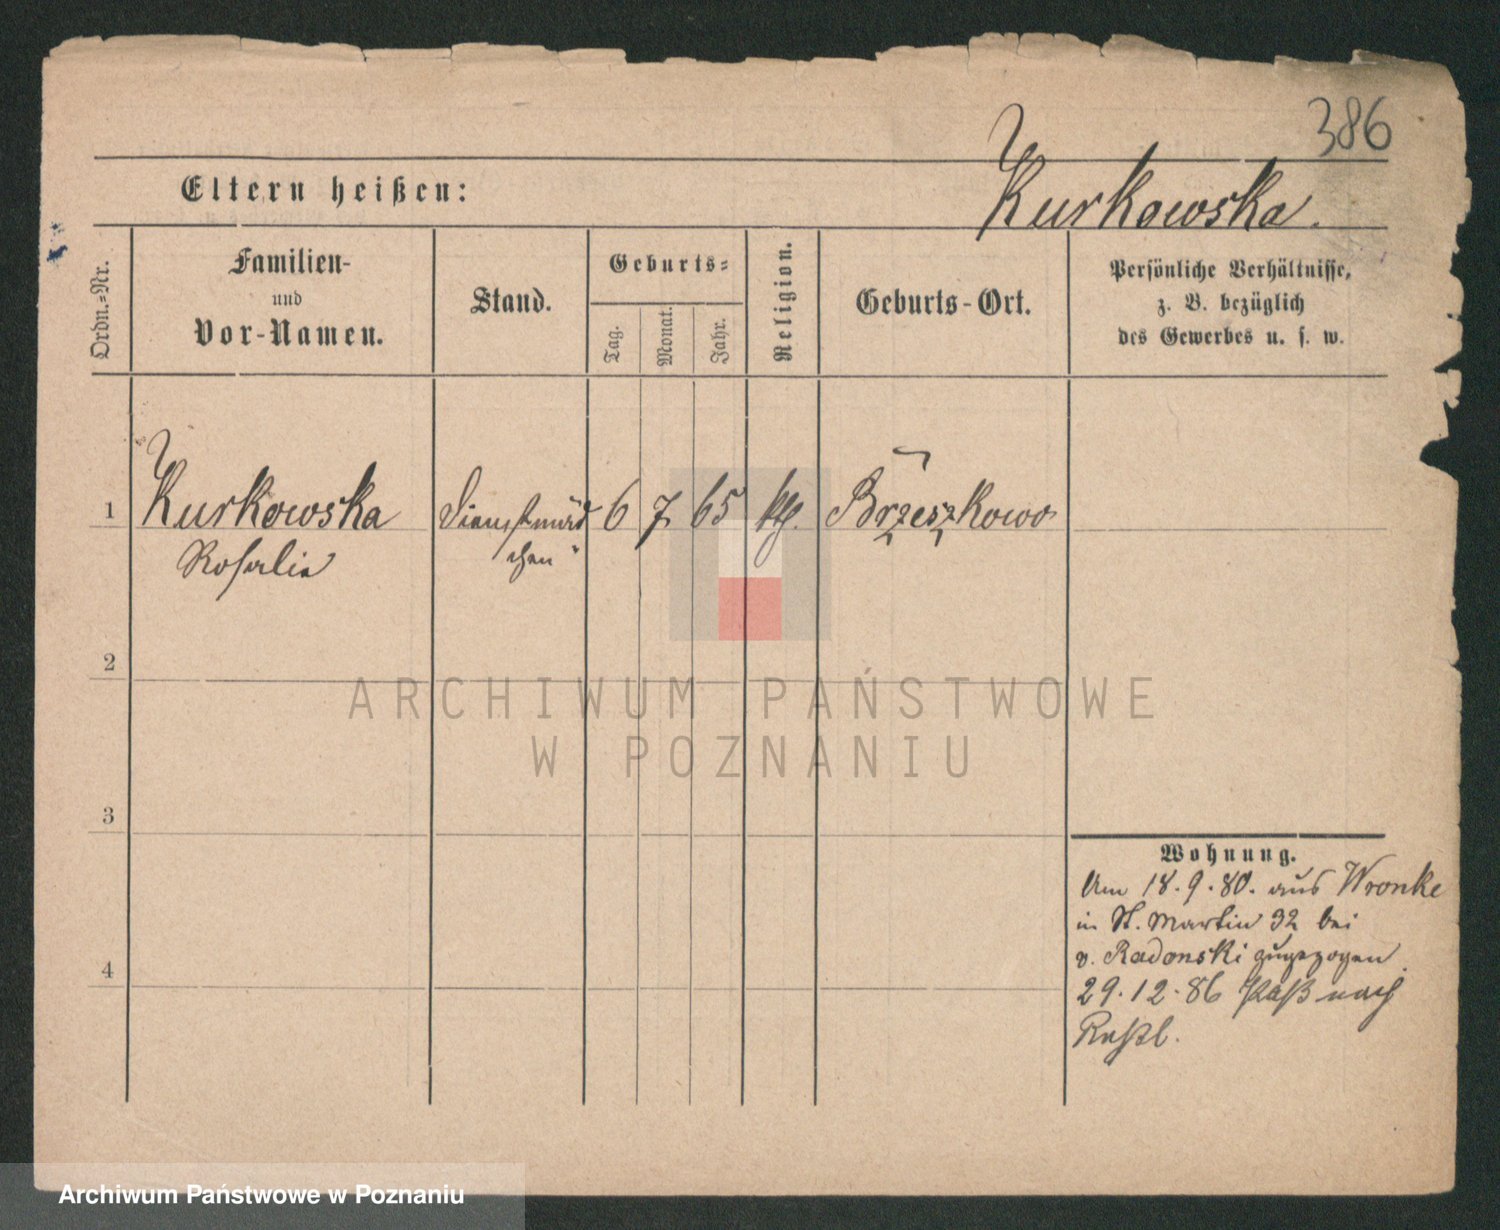 386
Kurkowska.
Eltern heißen:
Ordn.-Nr.
Familien-
und
Vor-Namen.
Stand.
Geburts-
Tag.
Monat.
Jahr.
Religion.
Geburts-Ort.
Persönliche Verhältnisse,
z. B. bezüglich
des Gewerbes u. s. w.
1 Kurkowska Dienstmäd 6 7 65 kth. Brzeszkowo
Rosalie chen
2
3
4
Wohnung.
Am 18.9.80. aus Wronke
in St. Martin 32 bei
v. Radonski zugezogen
29.12.86 Paß nach
Rußl.
ARCHIWUM PAŃSTWOWE
W POZNANIU
Archiwum Państwowe w Poznaniu